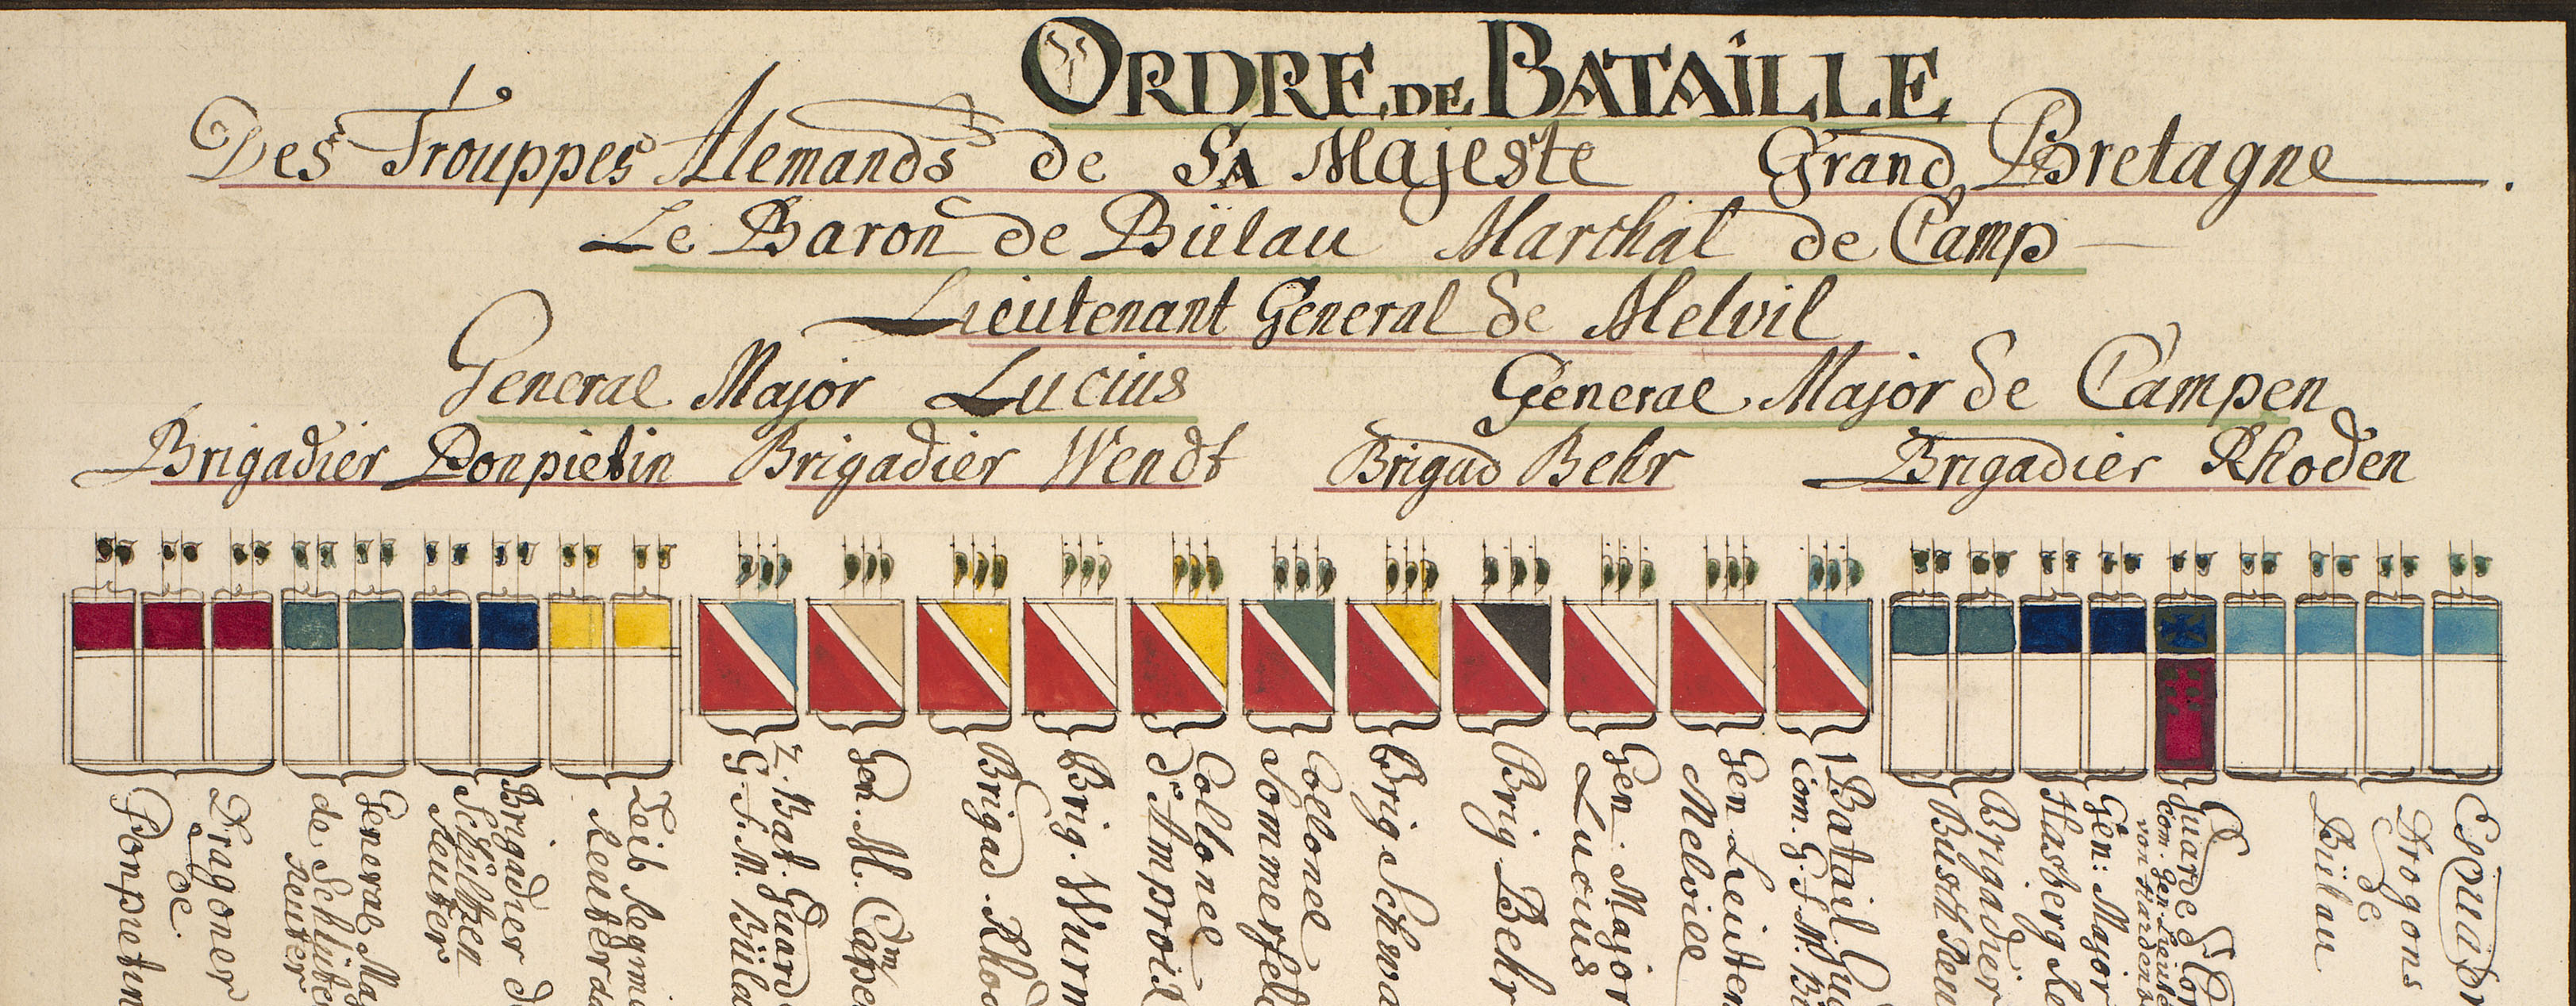 ORDRE DE BATAILLE
Des Trouppes Alemands de SA Majeste Grand Bretagne
Le Baron de Bülau Marchal de Camp
Lieutenant General de Melvil
General Major Lucius General Major de Campen
Brigadier Ponpietin Brigadier Wendt Brigad Behr Brigadier Rhoden
Dragoner
de
Pompietin
General
de Schlüte
Reuter
Brigadier
Schültzen
Reuter
Leib
Reuter
2. Bat. Guard
G. F. M. Büla
Gen. M.
Brigad. Rho
Brig. Wurm
Collonel
d'Amproil
Collonel
Sommerfel
Brig Schwa
Brig Behr
Gen. Major
Lucius
Gen Lieuten
Melville
1 Batail Gu
Com. G. F. M. Bü
Brigadier
Büsch Reu
Gen: Major
Hasberg Re
Guarde
Com. Gen. Lieut
von Harden
Drogons
de
Bülau
Esquad